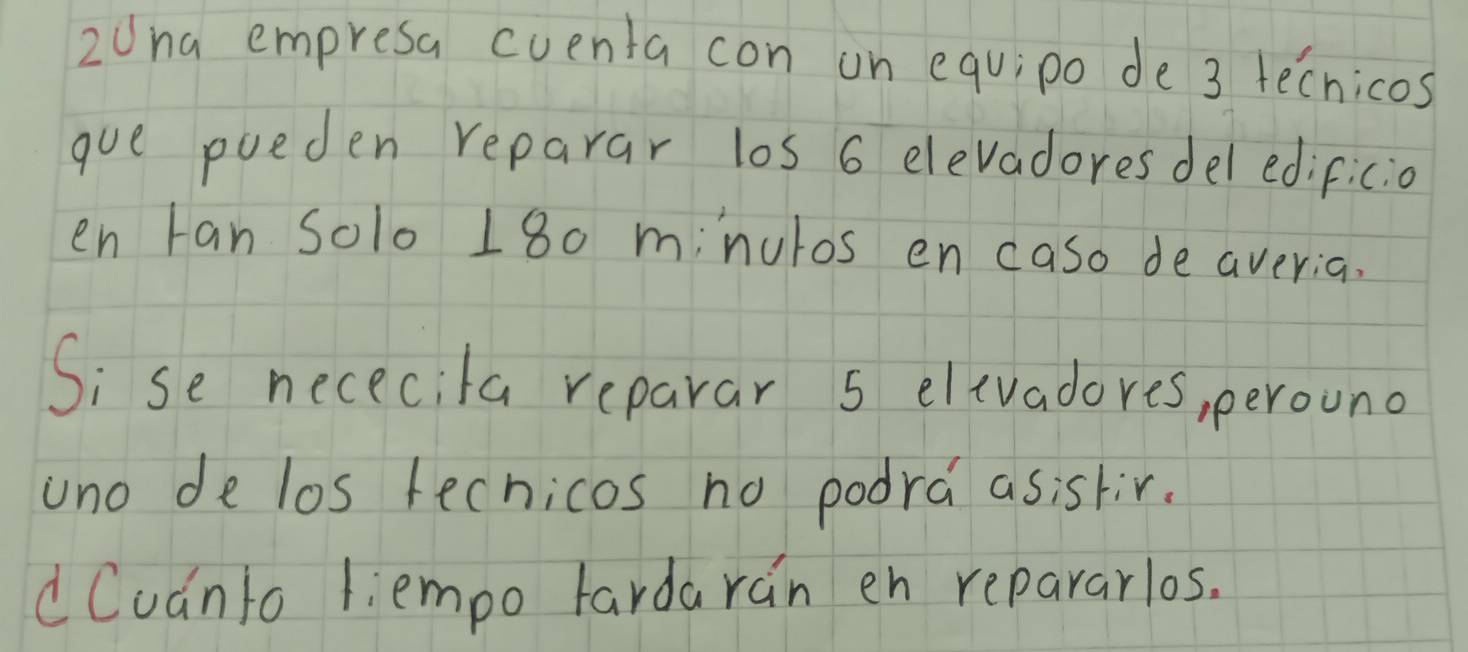 2 Una empresa cuenta con un equipo de 3 técnicos
que pueden reparar los 6 elevadores del edificio
en tan solo 180 minutos en caso de averia.
Si se nececita reparar 5 elevadores, pero uno
uno de los tecnicos no podrá asistir.
¿Cuánto tiempo tardarán en repararlos.